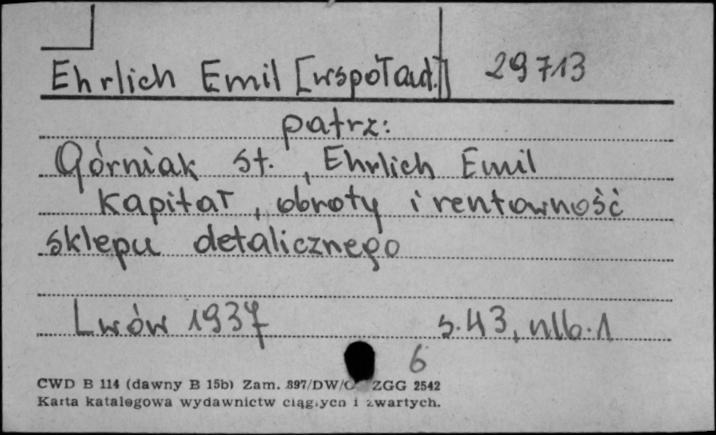 Ehrlich Emil [współaut.] 29713
patrz:
Górniak St., Ehrlich Emil
Kapitał, obroty i rentowność
sklepu detalicznego
Lwów 1937 s.43, nlb.1
6
CWD B 114 (dawny B 15b) Zam. 897/DW/ ZGG 2542
Karta katalogowa wydawnictw ciągłych i zwartych.